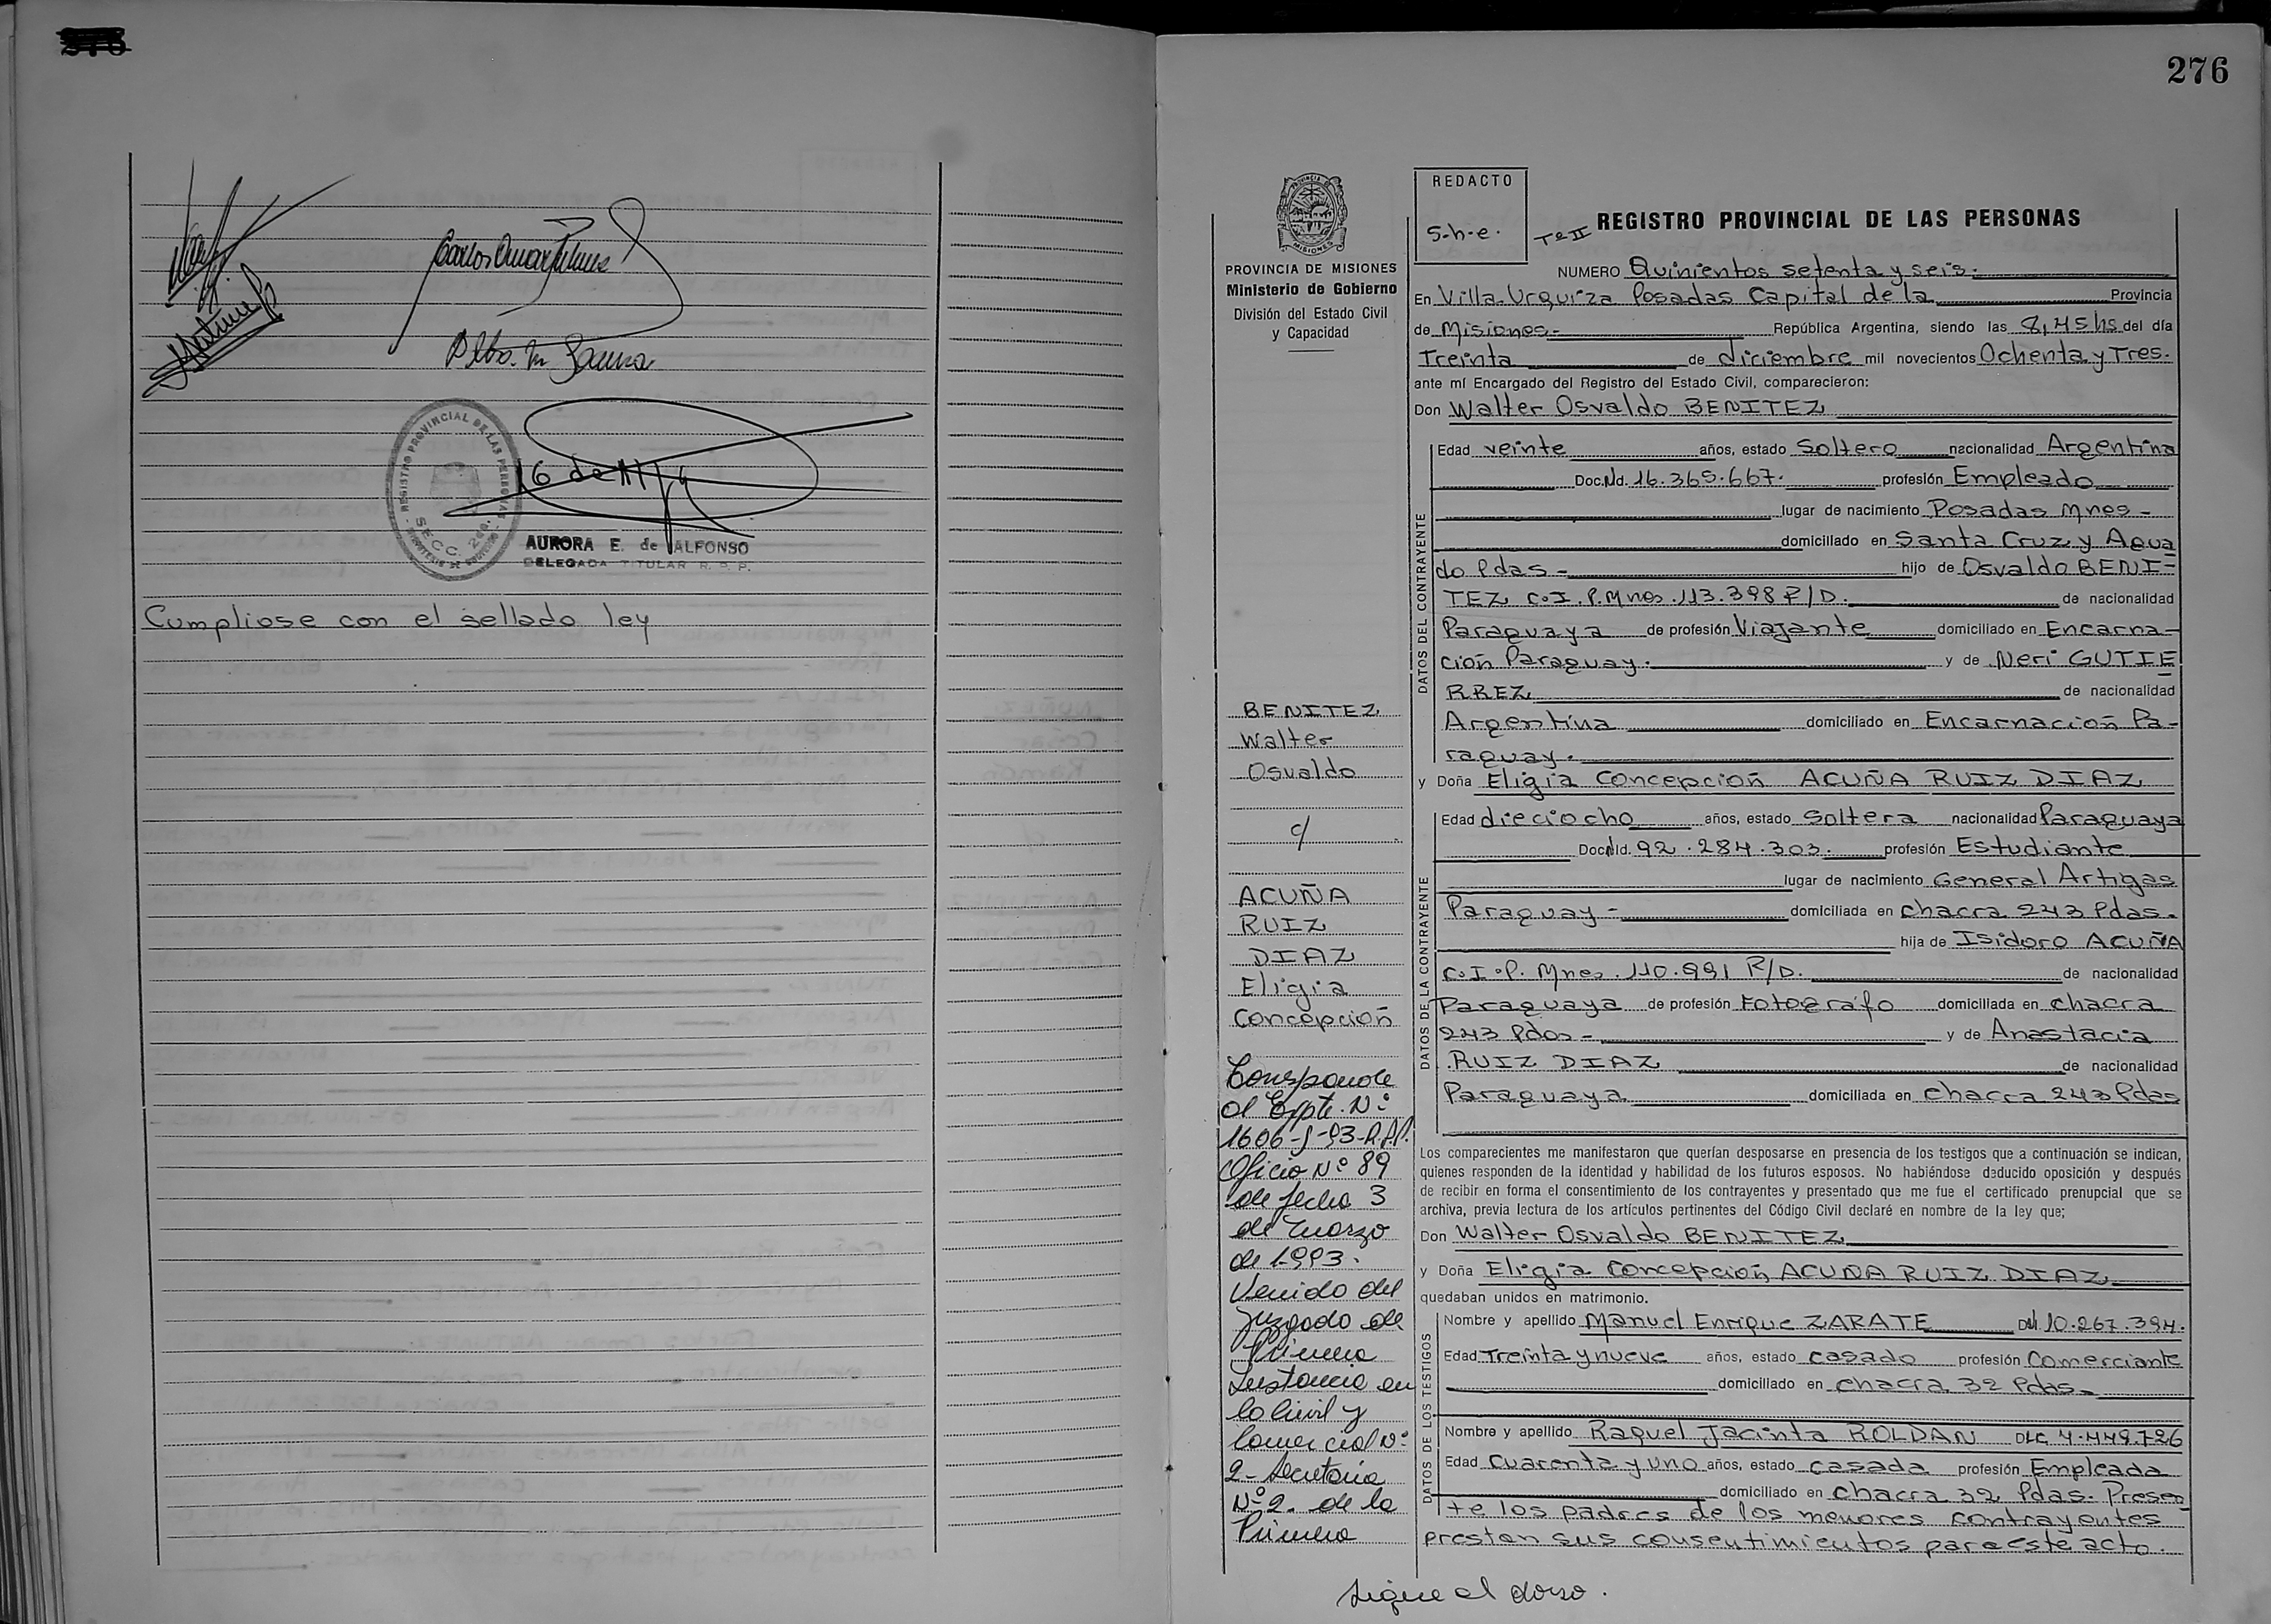 Carlos Omar
REGISTRO PROVINCIAL DE LAS PERSONAS
SECC. 2da.
16 de
AURORA E. de ALFONSO
DELEGADA TITULAR R. P. P.
Cumpliose con el sellado ley
276
PROVINCIA DE MISIONES
Ministerio de Gobierno
División del Estado Civil
y Capacidad
BENITEZ
Walter
Osvaldo
c/
ACUÑA
RUIZ
DIAZ
Eligia
Concepción
Corresponde
al Expte. Nº
1606-J-93-R.P.P.
Oficio Nº 89
de fecha 3
de Marzo
de 1993.
Venido del
Juzgado de
Primera
Instancia en
lo Civil y
Comercial Nº
2- Secretaria
Nº 2- de la
Primera
REDACTO
S-h-e.
Tº II
REGISTRO PROVINCIAL DE LAS PERSONAS
NUMERO Quinientos setenta y seis.
En Villa Urquiza Posadas Capital de la Provincia
de Misiones- República Argentina, siendo las 8,45 hs del día
Treinta de diciembre mil novecientos Ochenta y Tres.
ante mí Encargado del Registro del Estado Civil, comparecieron:
Don Walter Osvaldo BENITEZ
DATOS DEL CONTRAYENTE
Edad veinte años, estado Soltero nacionalidad Argentina
Doc. Nd. 16.365.667. profesión Empleado
lugar de nacimiento Posadas Mnes-
domiciliado en Santa Cruz y Agua
do Pdas- hijo de Osvaldo BENI-
TEZ C.I.P.Mnes.113.398 R/D. de nacionalidad
Paraguaya de profesión Viajante domiciliado en Encarna-
ción Paraguay. y de Neri GUTIE
RREZ de nacionalidad
Argentina domiciliado en Encarnación Pa-
raguay.
y Doña Eligia Concepción ACUÑA RUIZ DIAZ
DATOS DE LA CONTRAYENTE
Edad dieciocho años, estado Soltera nacionalidad Paraguaya
Doc. Nd. 92.284.303. profesión Estudiante
lugar de nacimiento General Artigas
Paraguay- domiciliada en chacra 243 Pdas.
hija de Isidoro ACUÑA
C.I.P. Mnes.110.991 R/D. de nacionalidad
Paraguaya de profesión Fotografo domiciliada en chacra
243 Pdas- y de Anastacia
RUIZ DIAZ de nacionalidad
Paraguaya domiciliada en chacra 243 Pdas
Los comparecientes me manifestaron que querían desposarse en presencia de los testigos que a continuación se indican,
quienes responden de la identidad y habilidad de los futuros esposos. No habiéndose deducido oposición y después
de recibir en forma el consentimiento de los contrayentes y presentado que me fue el certificado prenupcial que se
archiva, previa lectura de los artículos pertinentes del Código Civil declaré en nombre de la ley que;
Don Walter Osvaldo BENITEZ
y Doña Eligia Concepción ACUÑA RUIZ DIAZ
quedaban unidos en matrimonio.
DATOS DE LOS TESTIGOS
Nombre y apellido Manuel Enrique ZARATE DNI. 10.267.394.
Edad Treinta y nueve años, estado casado profesión Comerciante
domiciliado en chacra 32 Pdas-
Nombre y apellido Raquel Jacinta ROLDAN DLC 4.449.726
Edad Cuarenta y uno años, estado casada profesión Empleada
domiciliado en chacra 32 Pdas. Presen
te los padres de los menores contrayentes
prestan sus consentimientos para este acto.
Sigue al dorso.